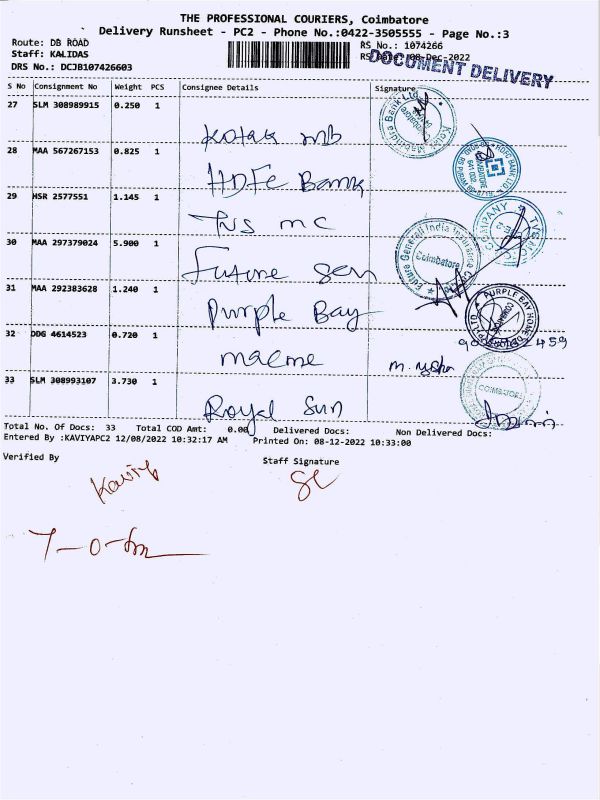 THE PROFESSIONAL COURIERS, Coimbatore
Delivery Runsheet - PC2 - Phone No.:0422-3505555 - Page No.:3
Route: DB ROAD
RS No.: 1074266
Staff: KALIDAS
08-Dec-2022
DRS No.: DCJB107426603
DOCUMENT DELIVERY
S No Consignment No Weight PCS Consignee Details Signature
27 SLM 308989915 0.250 1
Kotak mb
28 MAA 567267153 0.825 1
HDFC Bank
29 NSR 2577551 1.145 1
TVS mc
30 MAA 297379024 5.900 1
Future Gen
Future Generali India Insurance Co
Coimbatore
31 MAA 292383628 1.240 1
Purple Bay
PURPLE BAY HOME
32 DDG 4614523 0.720 1
459
33 SLM 308993107 3.730 1
COIMBATORE
Royal Sun
Total No. Of Docs: 33 Total COD Amt: 0.00 Delivered Docs: Non Delivered Docs:
Entered By :KAVIYAPC2 12/08/2022 10:32:17 AM Printed On: 08-12-2022 10:33:00
Verified By Staff Signature
Kaviya